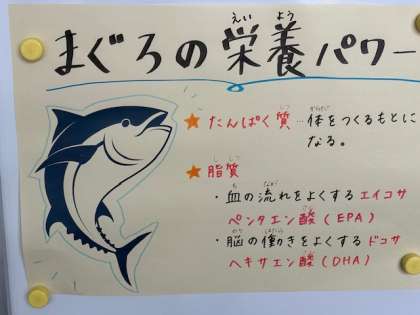 まぐろの栄養パワー
★たんぱく質…体をつくるもとに
なる。
★脂質
・血の流れをよくするエイコサ
ペンタエン酸(EPA)
・脳の働きをよくするドコサ
ヘキサエン酸(DHA)